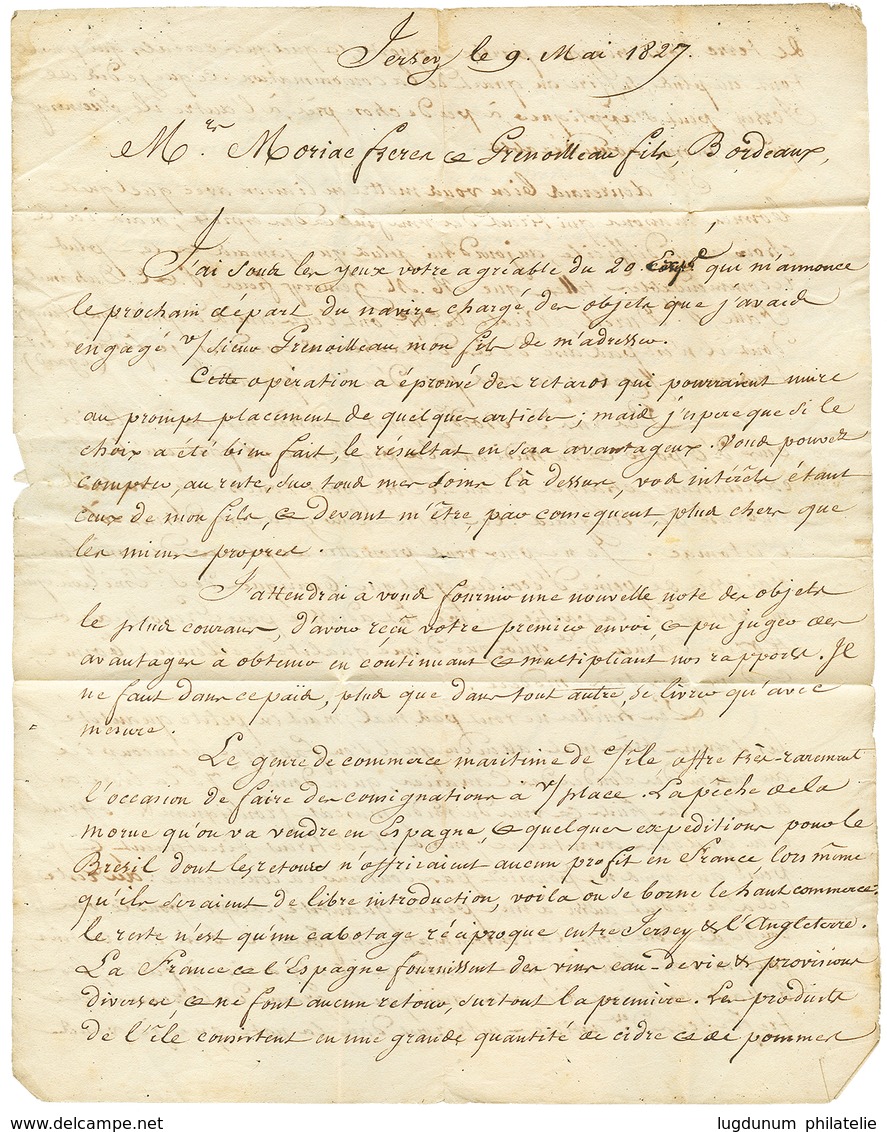 Jersey le 9. Mai 1827.
Mrs. Moriac freres & Grenoilleau fils Bordeaux,
J'ai sous les yeux votre agréable du 20. qui m'annonce
le prochain départ du navire chargé des objets que j'avais
engagé v/ sieur Grenoilleau mon fils de m'adresser.
Cette opération a éprouvé des retards qui pourraient nuire
au prompt placement de quelques articles; mais j'espere que si le
choix a été bien fait, le résultat en sera avantageux. Vous pouvez
compter, au reste, sur tous mes soins là dessus, vos intérêts étant
ceux de mon fils, & devant m'être, par consequent, plus chers que
les miens propres.
J'attendrai à vous fournir une nouvelle note des objets
le plus courans, d'avoir reçu votre premier envoi, & pu juger des
avantages à obtenir en continuant & multipliant nos rapports. Il
ne faut dans ce païs, plus que dans tout autre, se livrer qu'avec
mesure.
Le genre de commerce maritime de c/ île offre très-rarement
l'occasion de faire des consignations à v/ place. La pêche de la
morue qu'on va vendre en Espagne, & quelques expéditions pour le
Brésil dont les retours n'offriraient aucun profit en France lors même
qu'ils seraient de libre introduction, voila où se borne le haut commerce.
le reste n'est qu'un cabotage réciproque entre Jersey & l'Angleterre.
La France & l'Espagne fournissent des vins eau-de vie & provisions
diverses, & ne font aucun retour, surtout la première. Les produits
de l'île consistent en une grande quantité de cidre & de pommes
www.delcampe.net
lugdunum philatelie